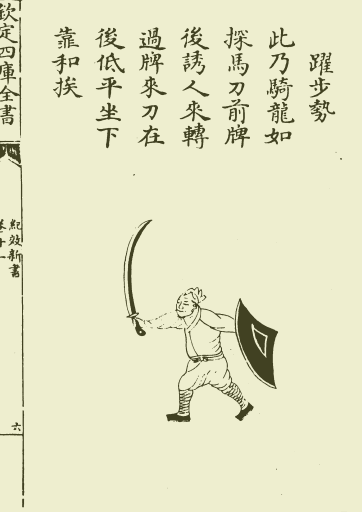 躍步勢
此乃騎龍如
探馬刀前牌
後誘人來轉
過牌來刀在
後低平坐下
靠和挨
欽定四庫全書
紀效新書
卷十一
六